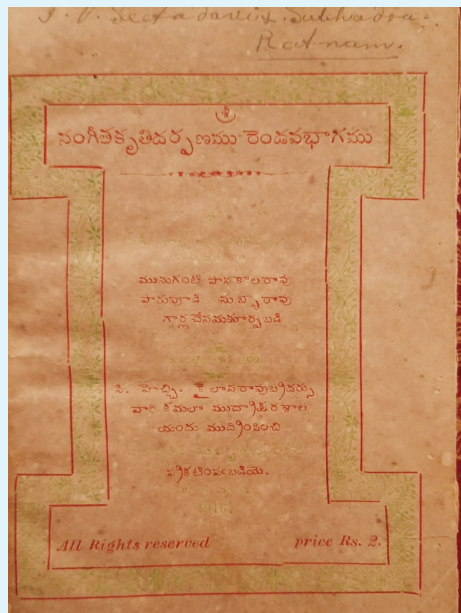 Subhadra
Ratnam.
శ్రీ
సంగీతకృతిదర్పణము రెండవభాగము
మునుగంటి పానకాలరావు
పానుపూడి సుబ్బారావు
గార్లచేసమకూర్పబడి
సి. హెచ్చి. కైలాసరావుబ్రదర్సు
వారి కమలా ముద్రాక్షరశాల
యందు ముద్రింపించి
ప్రకటింపఁబడియె.
1916.
All Rights reserved price Rs. 2.